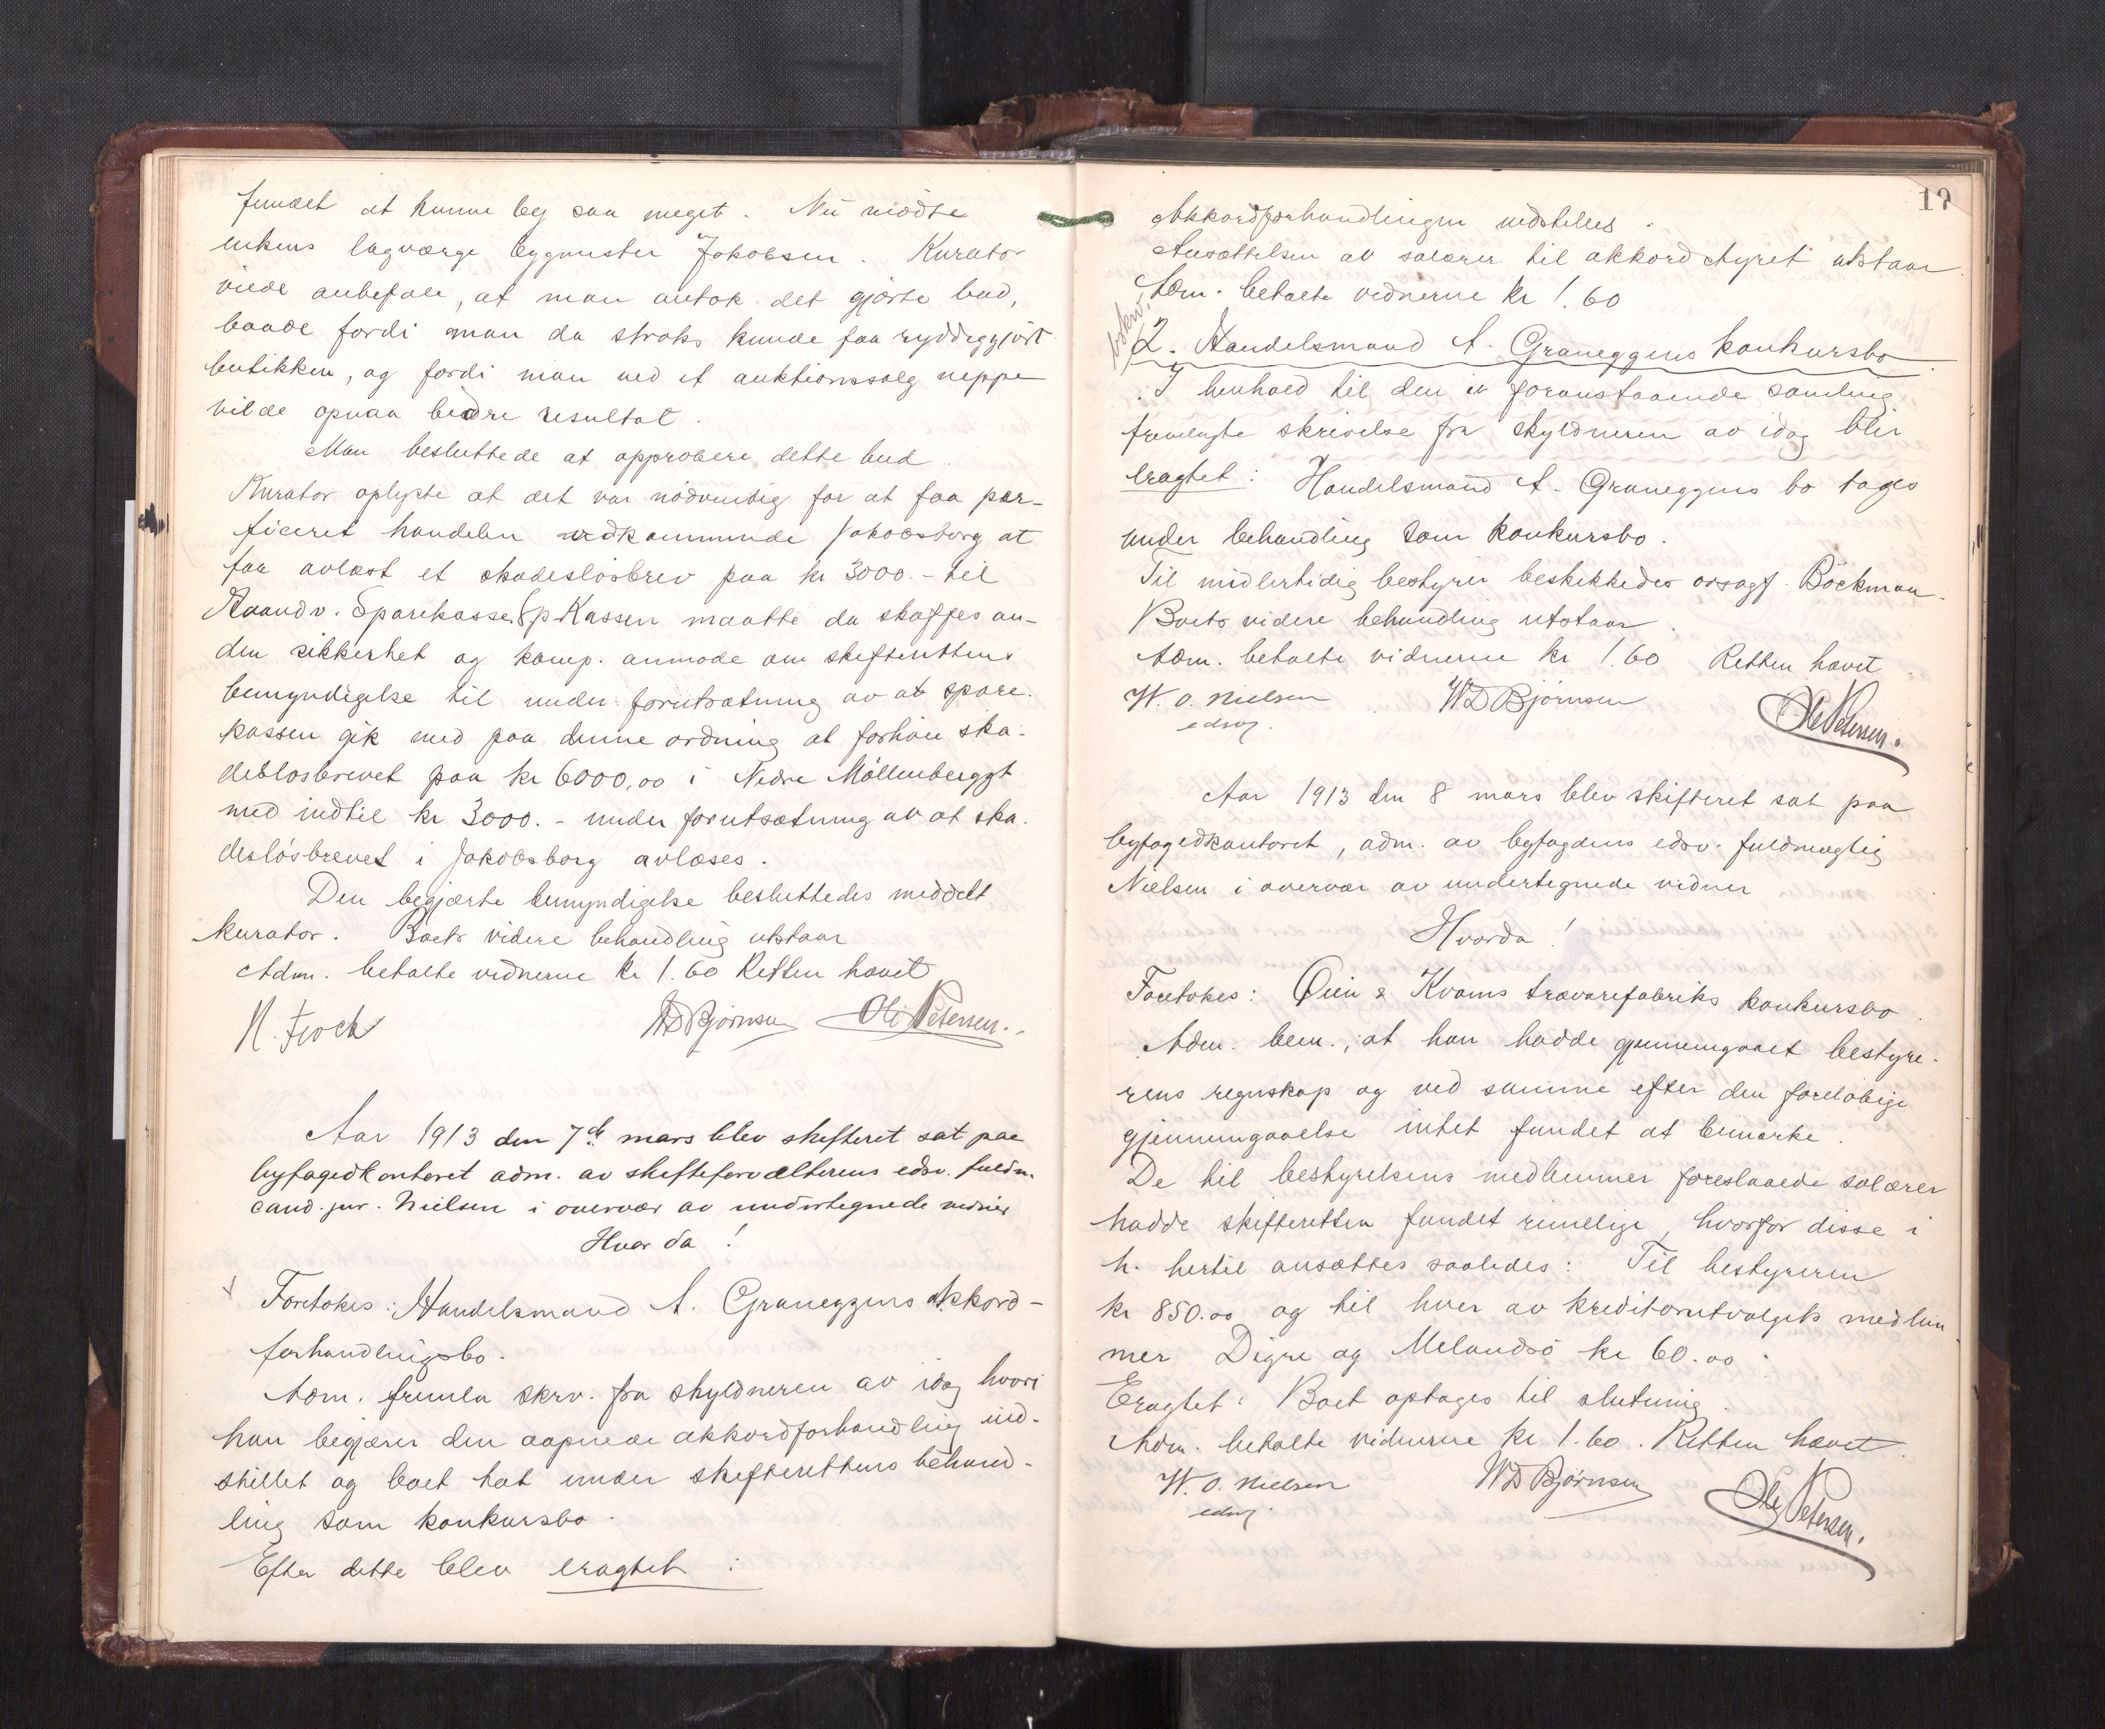 fundet at kunne by saa meget. Nu mødte
enkens lagværge bygmester Jakobsen. Kurator
vilde anbefale, at man antok det gjorte bud,
baade fordi man da straks kunde faa ryddiggjort
butikken, og fordi man ved et auktionssalg neppe
vilde opnaa bedre resultat.
Man besluttede at approbere dette bud
Kurator oplyste at det var nødvendig for at faa per-
ficeret handelen vedkommende Jakobsborg at
faa avløst et skadesløsbrev paa kr 3000.- til
Sparekasse. Sp.Kassen maatte da skaffes an-
den sikkerhet og komp. anmode om skifterettens
bemyndigelse til under forutsætning av at spare-
kassen gik med paa denne ordning at forhøie ska-
deslosbrevet paa kr 6000,00 i Nedre Møllenberggt
med indtil kr 3000.- under forutsætning av at ska-
desløsbrevet i Jakobsborg avlæses.
Den begjærte bemyndigelse besluttedes meddelt
kurator. Boets videre behandling utstaar
Adm. betalte vidnerne kr 1.60 Retten hævet
WD Bjørnsen Ole Petersen.
Aar 1913 den 7de mars blev skifteret sat paa
byfogedkontoret adm. av skifteforvalterens edsv. fuldm.
cand. jur. Nielsen i overvær av undertegnede vidner
Hvorda!
Foretokes: Handelsmand A. Graneggens akkord-
forhandlingsbo.
Adm. fremla skrv. fra skyldneren av idag hvori
han begjærer den aapnede akkordforhandling ind-
stillet og boet tat under skifterettens behand-
ling som konkursbo.
Efter dette blev eragtet:
19
Akkordforhandlingen indstilles.
Ansættelsen av salærer til akkordstyret utstaar.
Adm. betalte vidnerne kr 1.60
2. Handelsmand A. Graneggens konkursbo
I henhold til den i foranstaaende samling
fremlagte skrivelse fra skyldneren av idag blir
eragtet: Handelsmand A. Graneggens bo tages
under behandling som konkursbo.
Til midlertidig bestyrer beskikkedes orsagf. Böckman.
Boets videre behandling utstaar.
Adm. betalte vidnerne kr 1.60 Retten hævet
W. O. Nielsen WD Bjørnsen Ole Petersen.
edsv.
Aar 1913 den 8 mars blev skifteret sat paa
byfogedkontoret, adm. av byfogdens edsv. fuldmægtig
Nielsen i overvær av undertegnede vidner
Hvorda!
Foretokes: Øien & Kvams trævarefabriks konkursbo.
Adm. bem., at han hadde gjennemgaaet bestyre-
rens regnskap og ved samme efter den foreløbige
gjennemgaaelse intet fundet at bemærke.
De til bestyrelsens medlemmer foreslaaede salærer
hadde skifteretten fundet rimelige, hvorfor disse i
h. hertil ansættes saaledes: Til bestyreren
kr 850.00 og til hver av kreditorutvalgets medlem
mer Digre og Melandsö kr 60.00.
Eragtet: Boet optages til slutning.
Adm. betalte vidnerne kr 1.60. Retten hævet.
W. O. Nielsen WD Bjørnsen Ole Petersen.
edsv.